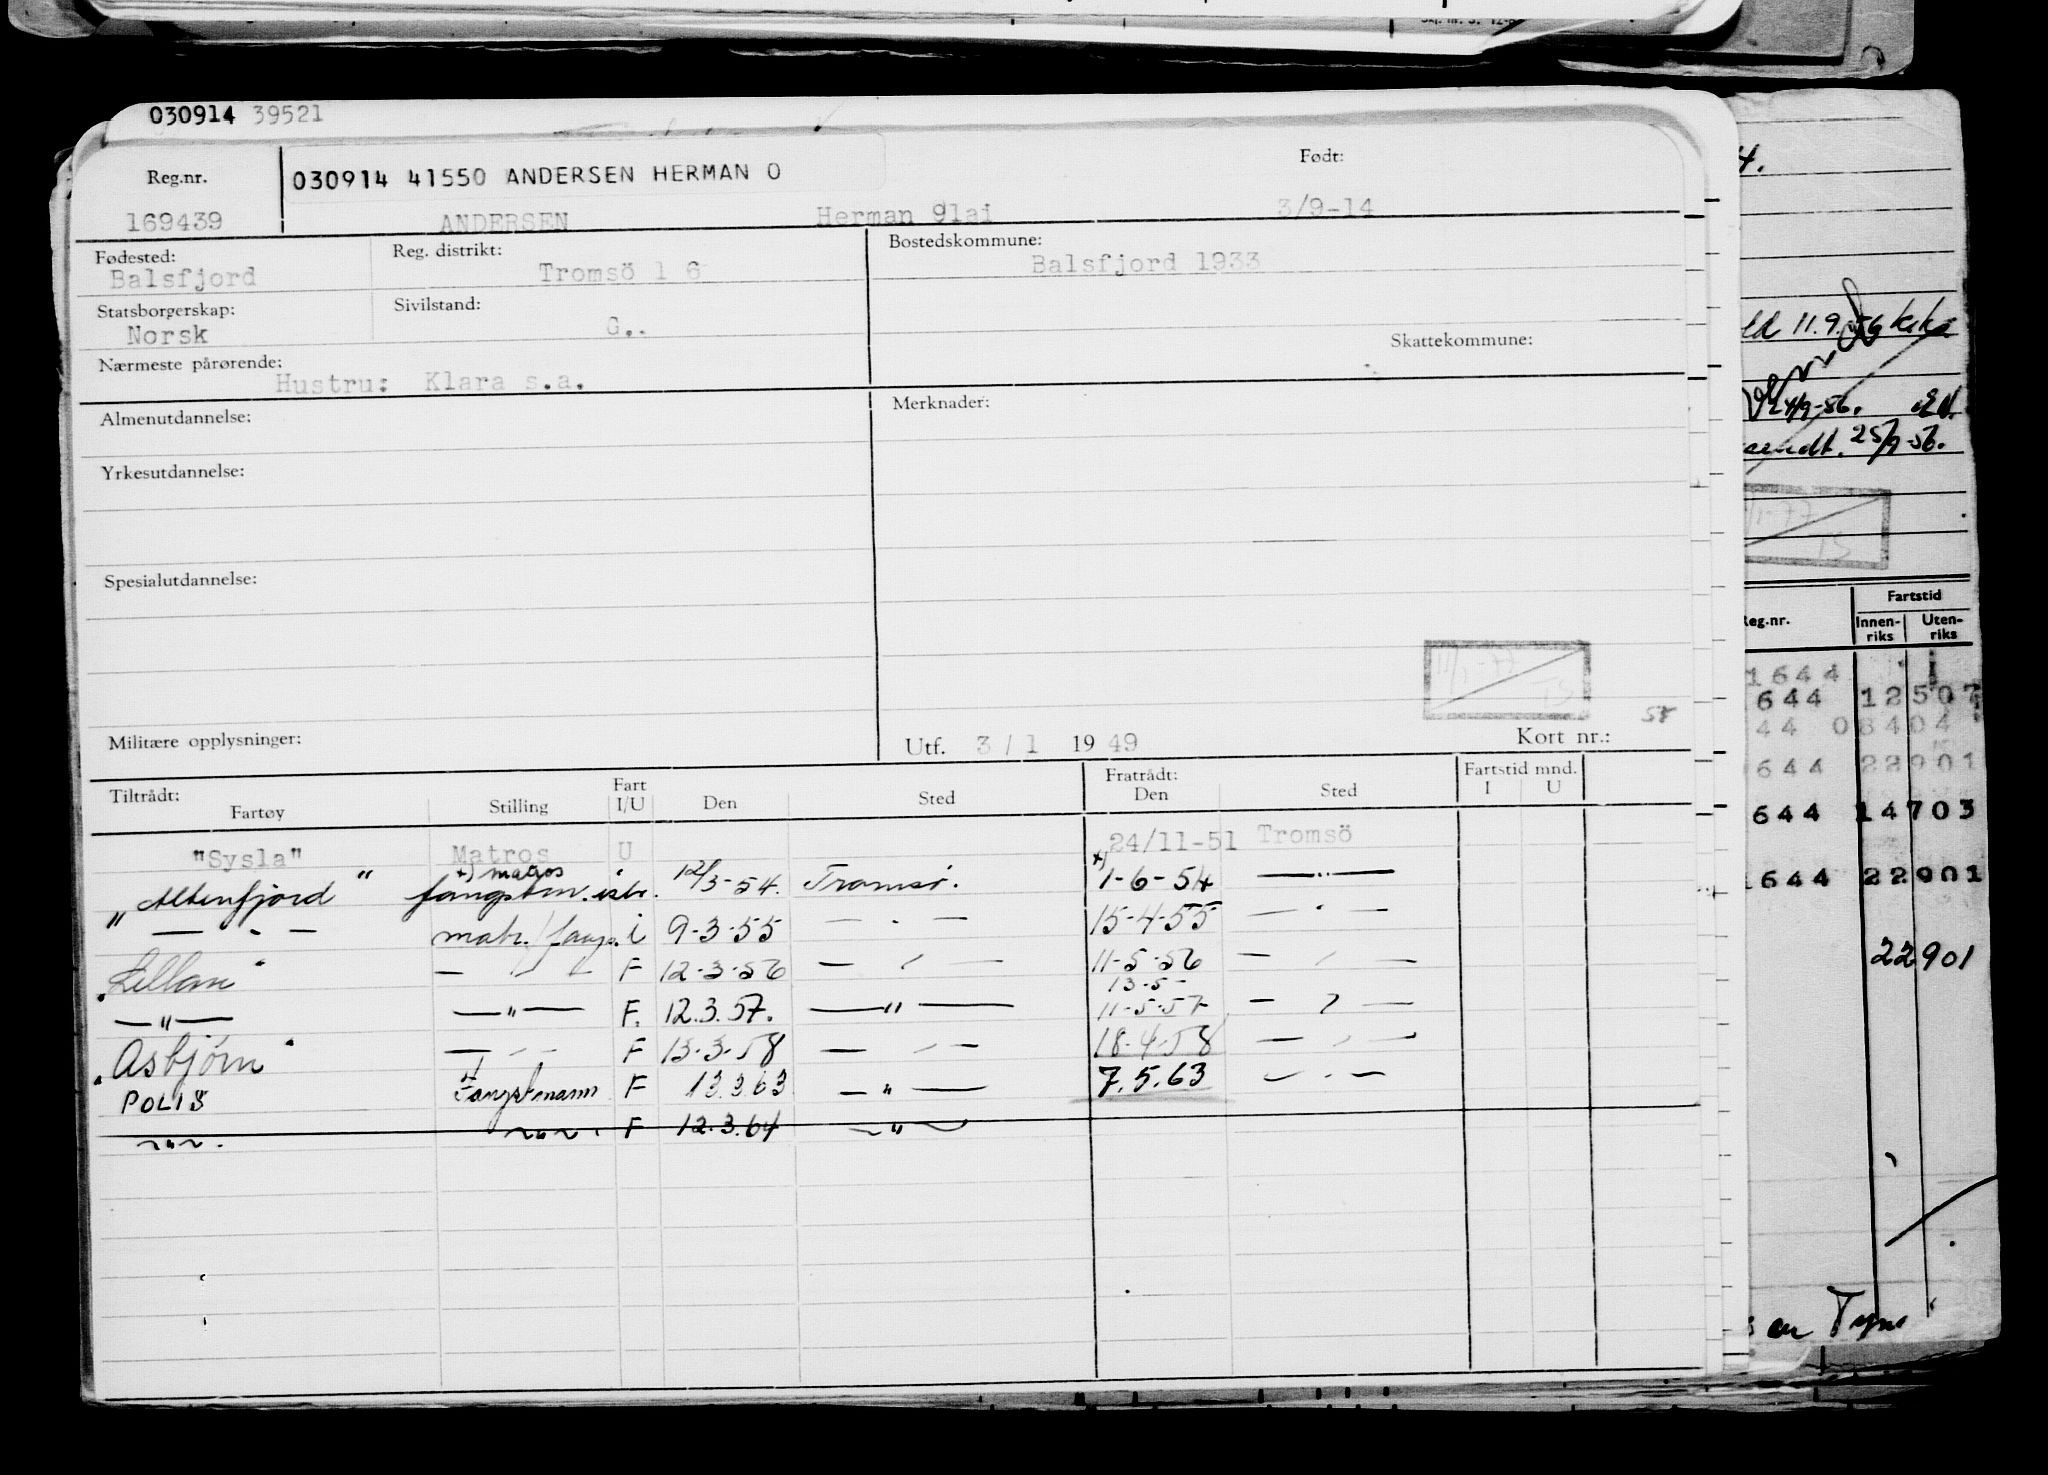 030914 39521
Reg.nr. 030914 41550 ANDERSEN HERMAN O Født:
169439 ANDERSEN Herman Olai 3/9-14
Fødested: Reg. distrikt: Bostedskommune:
Balsfjord Tromsö 1 6 Balsfjord 1933
Statsborgerskap: Sivilstand:
Norsk G..
Nærmeste pårørende: Skattekommune:
Hustru: Klara s.a.
Almenutdannelse: Merknader:
Yrkesutdannelse:
Spesialutdannelse:
11/1-77
TS
58
Militære opplysninger: Utf. 3 / 1 19 49 Kort nr.:
Tiltrådt: Fart Fratrådt: Fartstid mnd.
Fartøy Stilling I/U Den Sted Den Sted I U
"Sysla" Matros U 24/11-51 Tromsö
+) matros +)
"Altenfjord" fangstm. isbr. 12/3-54. Tromsø. 1-6-54 — " —
— " — matr./fangs. i 9-3-55 — " — 15-4-55 — " —
— " — F 12-3-56 — " — 11-5-56 — " —
13-5-
— " — — " — F. 12.3.57. — " — 11-5-57 — " —
"Asbjørn" — " — F 13-3-58 — " — 18-4-58 — " —
POLIS Fangstmann F 13.3.63 — " — 7.5.63 — " —
— " — — " — F 12.3.64 — " —
4.
11.9.56
24/9-56.
sendt. 25/9-56.
1-77
TS
Fartstid
Reg.nr. Innen-riks Uten-riks
1644
644 12507
44 08404
644 22901
644 14703
1644 22901
22901